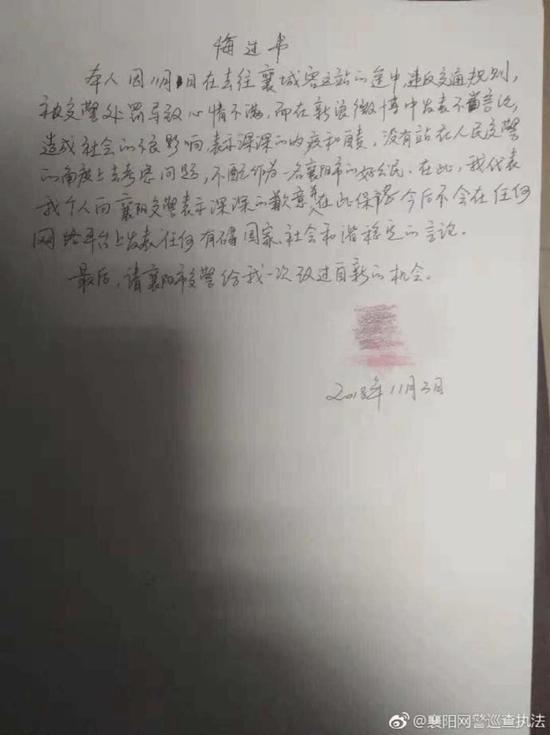 悔过书
本人因11月1日在去往襄城客运站的途中,违反交通规则,
被交警处罚导致心情不满,而在新浪微博中发表不当言论,
造成社会的很影响,表示深深的内疚和自责,没有站在人民交警
的角度上去考虑问题,不配作为一名襄阳市的好公民。在此,我代表
我个人向襄阳交警表示深深的歉意,在此保证今后不会在任何
网络平台上发表任何有碍国家、社会和谐稳定的言论。
最后,请襄阳市交警给我一次改过自新的机会。
2018年11月3日
@襄阳网警巡查执法